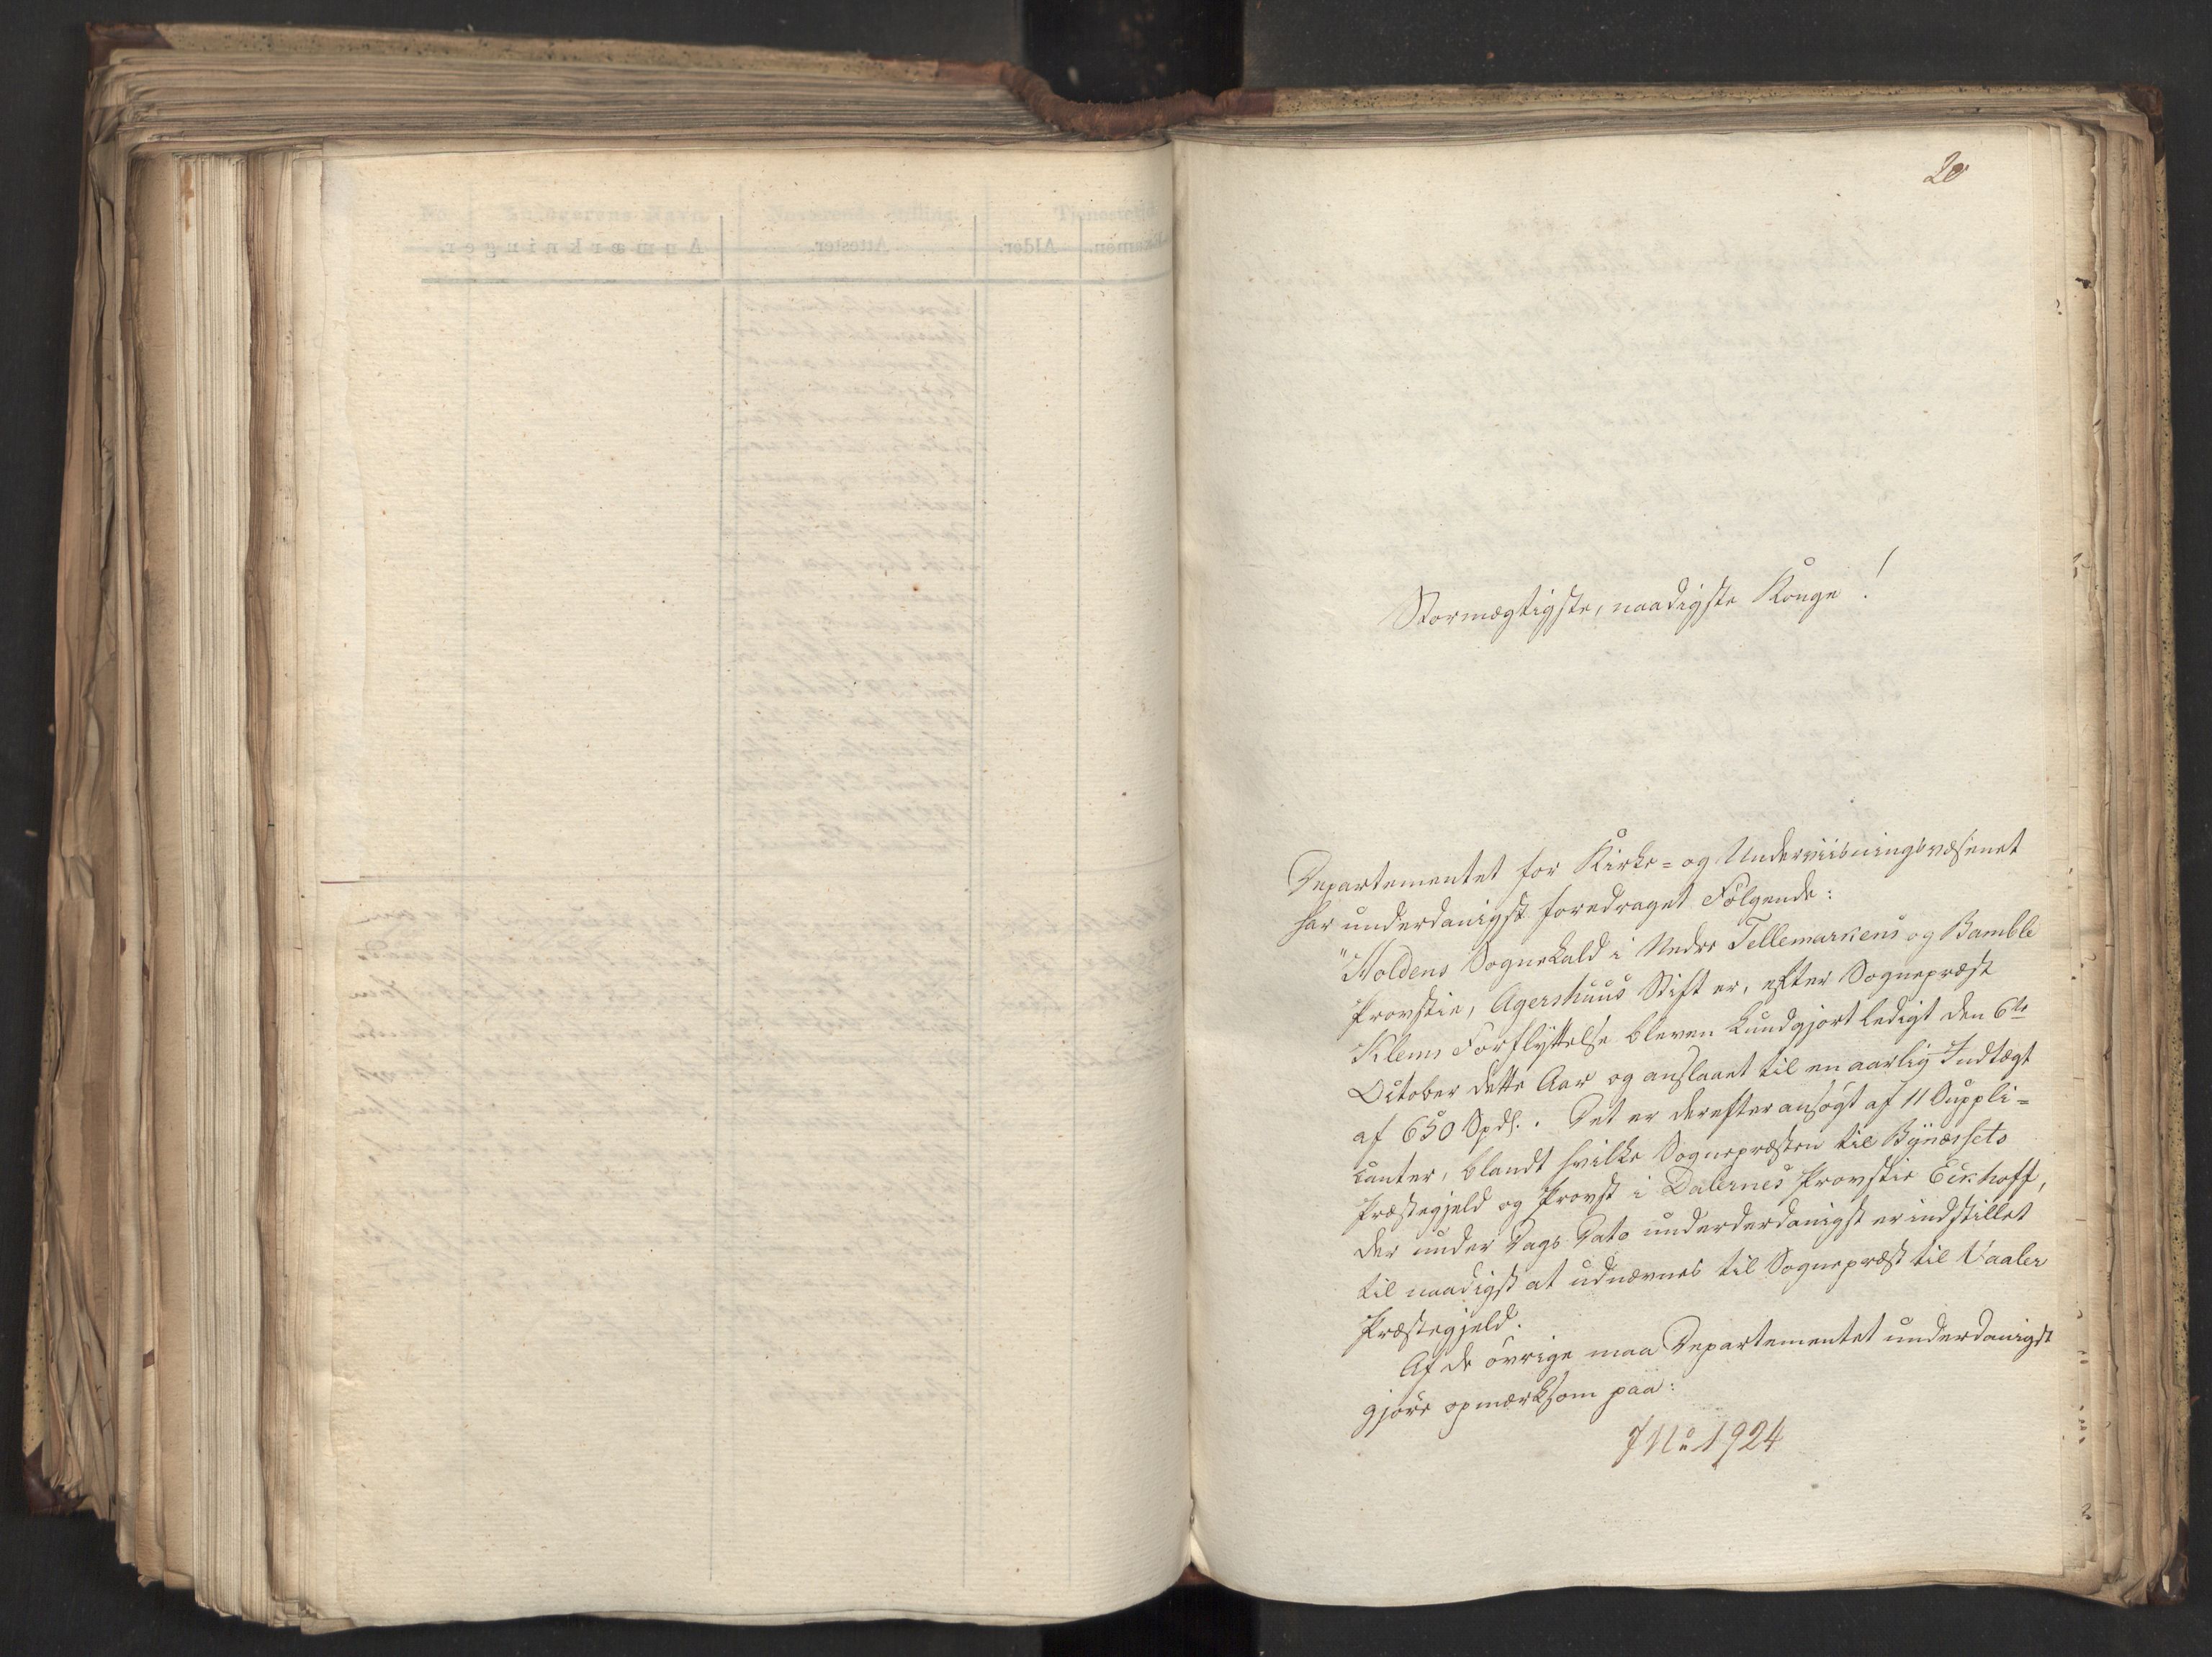 20
Stormægtigste, naadigste Konge!
Departementet for Kirke- og Underviisningsvæsenet
har underdanigst foredraget Følgende:
"Holdens Sognekald i Nedre Tellemarkens og Bamble
Provstie, Agershuus Stift er, efter Sognepræst
Klems Forflyttelse bleven kundgjort ledigt den 6te
October dette Aar og anslaaet til en aarlig Indtægt
af 650 Spdl.. Det er derefter ansøgt af 11 Suppli=
kanter, blandt hvilke Sognepræsten til Bynæssets
Præstegjeld og Provst i Dalernes Provstie Eckhoff,
der under Dags Dato underderdanigst er indstillet
til naadigst at udnævnes til Sognepræst til Vaaler
Præstegjeld.
Af de øvrige maa Departementet underdanigst
gjøre opmærksom paa:
J No 1924